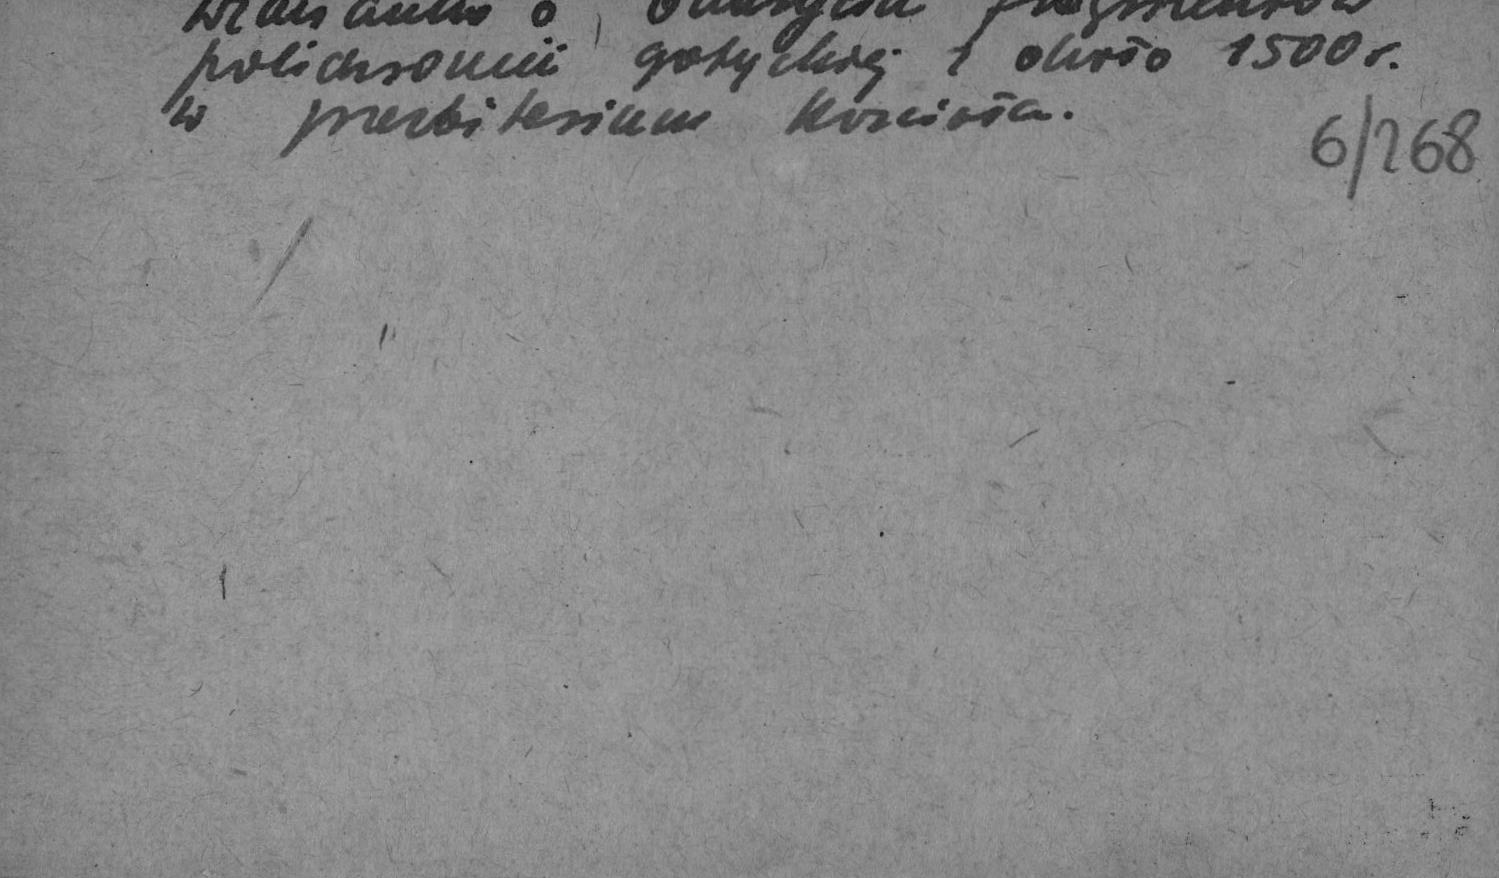 Wzmianka o odkryciu fragmentów
polichromii gotyckiej z około 1500 r.
w prezbiterium kościoła.
6/268